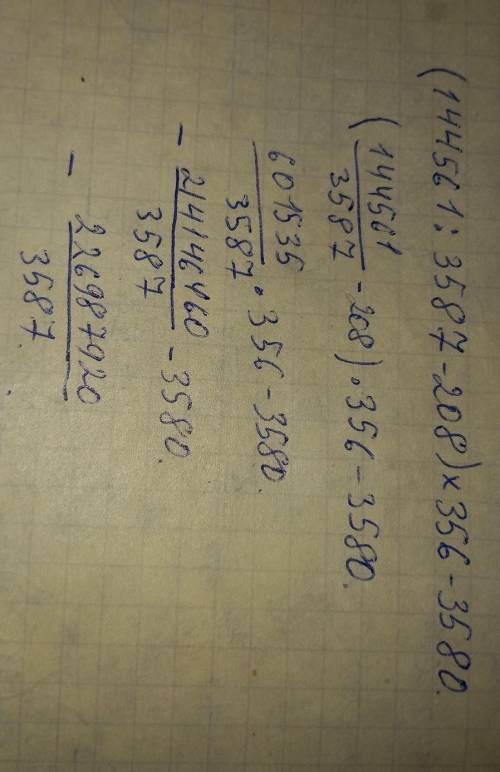 (144561:3587-208)×356-3580.
(144561/3587-208)·356-3580.
601535/3587·356-3580.
-214146460/3587-3580.
-226987920/3587